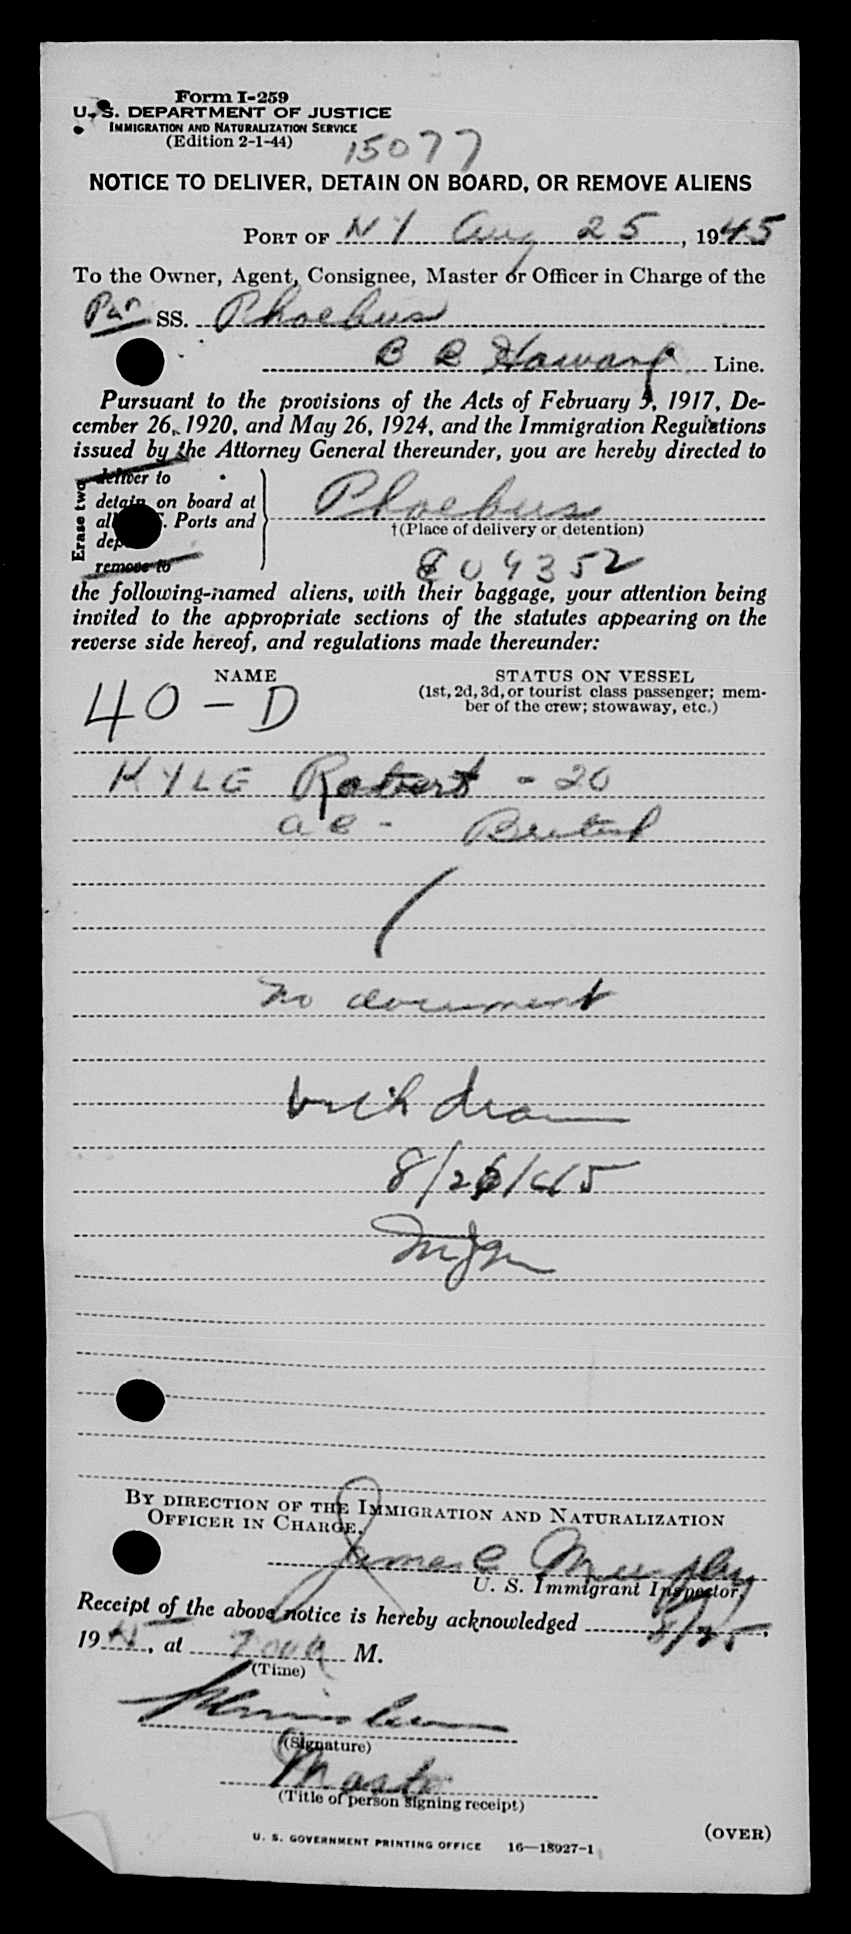 Form I-259
U. S. DEPARTMENT OF JUSTICE
IMMIGRATION AND NATURALIZATION SERVICE
(Edition 2-1-44)
15077
NOTICE TO DELIVER, DETAIN ON BOARD, OR REMOVE ALIENS
PORT OF NY Aug 25, 1945
To the Owner, Agent, Consignee, Master or Officer in Charge of the
Pan SS. Phoebus
Line.
Pursuant to the provisions of the Acts of February 5, 1917, De-
cember 26, 1920, and May 26, 1924, and the Immigration Regulations
issued by the Attorney General thereunder, you are hereby directed to
Erase two
deliver to
detain on board at
Ports and
remove to
Phoebus
†(Place of delivery or detention)
804352
the following-named aliens, with their baggage, your attention being
invited to the appropriate sections of the statutes appearing on the
reverse side hereof, and regulations made thereunder:
NAME
STATUS ON VESSEL
(1st, 2d, 3d, or tourist class passenger; mem-
ber of the crew; stowaway, etc.)
40-D
KYLE Robert - 20
British
no document
withdrawn
8/26/45
BY DIRECTION OF THE IMMIGRATION AND NATURALIZATION
OFFICER IN CHARGE.
James C Murphy
U. S. Immigrant Inspector.
Receipt of the above notice is hereby acknowledged 8/25,
1945, at M.
(Time)
(Signature)
Master
(Title of person signing receipt)
(OVER)
U. S. GOVERNMENT PRINTING OFFICE 16—18927-1